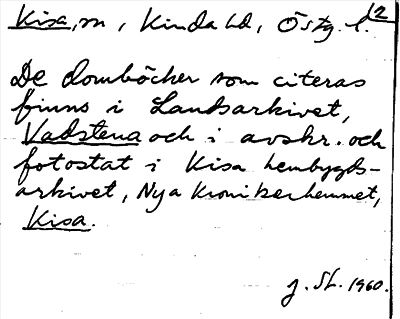 Kisa, sn, Kinda hd, Östg. l. 12
De domböcker som citeras
finns i Landsarkivet,
Vadstena och i avskr. och
fotostat i Kisa hembygds-
arkivet, Nya Kronikerhemmet,
Kisa.
J. SL. 1960.